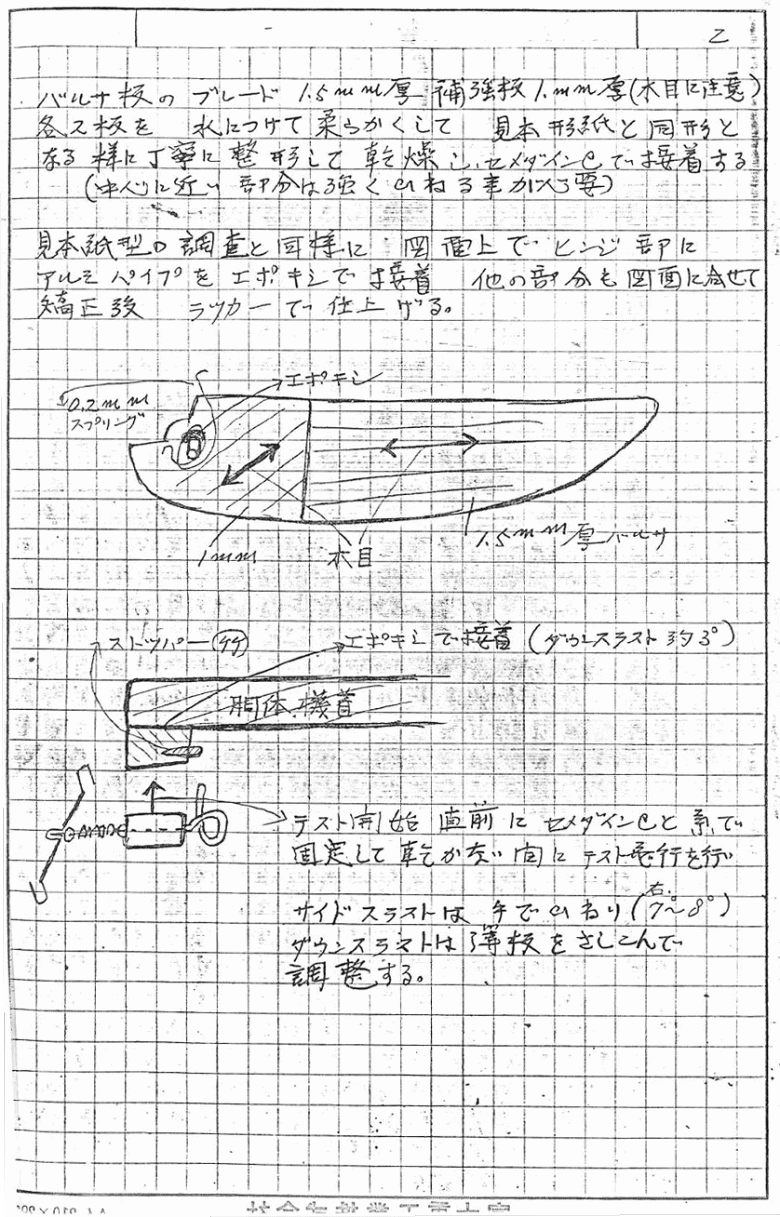 2
バルサ板の ブレード 1.5mm厚 補強板 1.mm厚(木目に注意)
各2板を 水につけて柔らかくして 見本形紙と同形と
なる様に丁寧に整形して乾燥し、セメダインCで接着する
(中心に近い部分は強くひねる事が必要)
見本紙型の調査と同様に 図面上でヒンジ部に
アルミパイプをエポキシで接着 他の部分も図面に合せて
矯正後 ラッカーで仕上げる。
エポキシ
0.2mm
スプリング
1mm
木目
1.5mm厚バルサ
ストッパー(竹)
エポキシで接着(ダウンスラスト約3°)
胴体機首
テスト開始直前にセメダインCと糸で
固定して乾かない間にテスト飛行を行
右
サイドスラストは手でひねり(7~8°)
ダウンスラストは薄板をさしこんで
調整する。